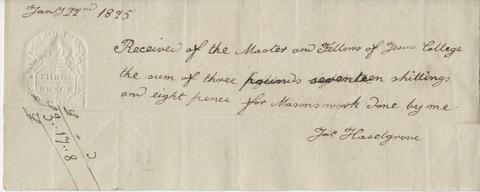 Jany 22nd 1825
THREE
PENCE
Received of the Master and Fellows of Jesus College
the sum of three pounds seventeen shillings
and eight pence for Masons work done by me.
Jas Haselgrove
£ s d
3..17..8